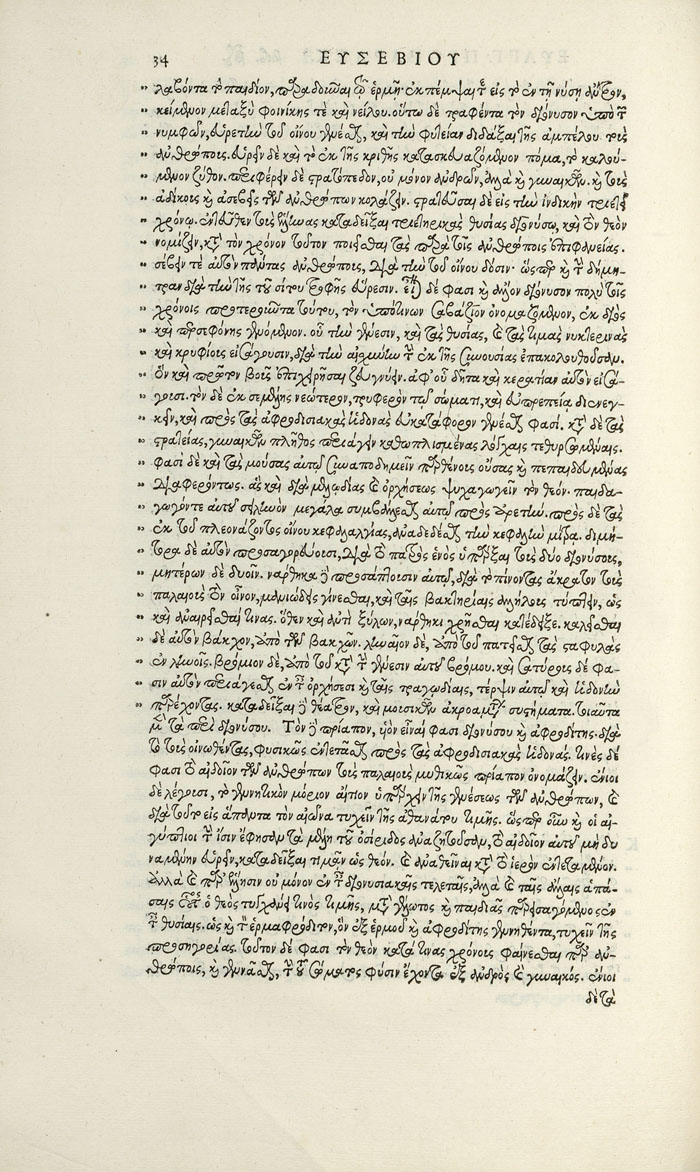 34 ΕΥΣΕΒΙΟΥ
λαβόντα τὸ παιδίον, παραδοῦναι τῷ ἑρμῇ· ἐκπέμψαι τε εἰς τὸ ἐν τῇ νύσῃ ἄντρον,
κείμενον μεταξὺ φοινίκης τὲ καὶ νείλου. οὕτω δὲ τραφέντα τὸν διόνυσον ὑπὸ τῶν
νυμφῶν, εὑρετὴν τοῦ οἴνου γενέσθαι, καὶ τὴν φυτείαν διδάξαι τῆς ἀμπέλου τοὺς
ἀνθρώποις. εὑρεῖν δὲ καὶ τὸ ἐκ τῆς κριθῆς κατασκευαζόμενον πόμα, τὸ καλού-
μενον ζύθον. περιφέρειν δὲ στρατόπεδον, οὐ μόνον ἀνδρῶν, ἀλλὰ καὶ γυναικῶν. καὶ τοὺς
ἀδίκους καὶ ἀσεβεῖς τῶν ἀνθρώπων κολάζειν. στρατεῦσαι δὲ εἰς τὴν ἰνδικὴν τριετεῖ
χρόνῳ. ἐντεῦθεν τοὺς ἕλληνας καταδεῖξαι τριετηρικὰς θυσίας διονύσῳ, καὶ τὸν θεὸν
νομίζειν, κατὰ τὸν χρόνον τοῦτον ποιεῖσθαι τὰς παρὰ τοῖς ἀνθρώποις ἐπιφανείας.
σέβειν τὲ αὐτὸν πάντας ἀνθρώποις, διὰ τὴν τοῦ οἴνου δόσιν· ὥσπερ καὶ τὴν δήμη-
τραν διὰ τὴν τῆς τοῦ σίτου τροφῆς εὕρεσιν. δὲ φασι καὶ ἄλλον διόνυσον πολὺ τοῖς
χρόνοις προτεροῦντα τούτου, τὸν ὑπό τινων σαβάζιον ὀνομαζόμενον, ἐκ διὸς
καὶ περσεφόνης γενόμενον. οὗ τὴν γένεσιν, καὶ τὰς θυσίας, καὶ τὰς τιμὰς νυκτερινὰς
καὶ κρυφίους εἰσάγουσιν, διὰ τὴν αἰσχύνην τὴν ἐκ τῆς συνουσίας ἐπακολουθοῦσαν.
ὃν καὶ πρῶτον βοῦς ἐπιχειρῆσαι ζευγνύειν. ἀφ' οὗ δῆτα καὶ κερατίαν αὐτὸν εἰσά-
γουσι. τὸν δὲ ἐκ σεμέλης νεώτερον, τρυφερόν τε τῷ σώματι, καὶ εὐπρεπείᾳ διενεγ-
κεῖν, καὶ πρὸς τὰς ἀφροδισιακὰς ἡδονὰς εὐκατάφορον γενέσθαι φασί. κατὰ δὲ τὰς
στρατείας, γυναικῶν πλῆθος περιάγειν καθωπλισμένας λόγχαις τεθυρσωμέναις.
φασὶ δὲ καὶ τὰς μούσας αὐτῷ συναποδημεῖν παρθένους οὔσας καὶ πεπαιδευμένας
διαφερόντως. ἃς καὶ διὰ μελῳδίας καὶ ὀρχήσεως ψυχαγωγεῖν τὸν θεόν. παιδα-
γωγόν τε αὐτοῦ σειληνὸν μεγάλα συμβάλλεσθαι αὐτῷ πρὸς ἀρετήν. πρὸς δὲ τὰς
ἐκ τοῦ πλεονάζοντος οἴνου κεφαλαλγίας, ἀναδεδέσθαι τὴν κεφαλὴν μίτρᾳ. διμή-
τορα δὲ αὐτὸν προσαγορεύουσι, διὰ τὸ πατρὸς ἑνὸς ὑπάρξαι τοὺς δύο διονύσους,
μητέρων δὲ δυοῖν. ναρθηκα δὲ προσάπτουσιν αὐτῷ, διὰ τὸ πίνοντας ἄκρατον τοὺς
παλαιοὺς τὸν οἶνον, μανιώδεις γίνεσθαι, καὶ ταῖς βακτηρίαις ἀλλήλους τύπτειν, ὡς
καὶ ἀναιρεῖσθαί τινας. ὅθεν καὶ ἀντὶ ξύλων, ναρθηκι χρῆσθαι κατέδειξε. καλεῖσθαι
δὲ αὐτὸν βάκχον, ἀπὸ τῶν βακχῶν. ληναῖον δὲ, ἀπὸ τοῦ πατῆσαι τὰς σταφυλὰς
ἐν ληνοῖς. βρόμιον δὲ, ἀπὸ τοῦ κατὰ τὴν γένεσιν αὐτοῦ βρόμου. καὶ σατύρους δὲ φα-
σιν αὐτὸν περιάγεσθαι ἐν ταῖς ὀρχήσεσι καὶ ταῖς τραγῳδίαις, τέρψιν αὐτῷ καὶ ἡδονὴν
παρέχοντας. καταδεῖξαι δὲ θέατρον, καὶ μουσικῶν ἀκροαμάτων συστήματα. τοιαῦτα
μὲν τὰ περὶ διονύσου. Τὸν δὲ πρίαπον, υἱὸν εἶναί φασι διονύσου καὶ ἀφροδίτης· διὰ
τὸ τοὺς οἰνωθέντας, φυσικῶς ἐντετάσθαι πρὸς τὰς ἀφροδισιακὰς ἡδονάς. τινὲς δέ
φασι τὸ αἰδοῖον τῶν ἀνθρώπων τοὺς παλαιοὺς μυθικῶς πρίαπον ὀνομάζειν. ἔνιοι
δὲ λέγουσι, τὸ γεννητικὸν μόριον αἴτιον ὑπάρχειν τῆς γενέσεως τῶν ἀνθρώπων, καὶ
διὰ τοῦτο εἰς ἅπαντα τὸν αἰῶνα τυχεῖν τῆς ἀθανάτου τιμῆς. ὥσπερ οὖν καὶ οἱ αἰ-
γύπτιοι τὴν ἴσιν ἔφησαν τὰ μέλη τοῦ ὀσίριδος ἀναζητοῦσαν, τὸ αἰδοῖον αὐτοῦ μὴ δυ
ναμένην εὑρεῖν, καταδεῖξαι τιμᾶν ὡς θεόν. καὶ ἀναθεῖναι κατὰ τὸ ἱερὸν ἐντεταμένον.
ἀλλὰ καὶ παρ' ἕλλησιν οὐ μόνον ἐν ταῖς διονυσιακαῖς τελεταῖς, ἀλλὰ καὶ ταῖς ἄλλαις ἁπά-
σαις ὁ θεὸς τυγχάνει τινὸς τιμῆς, μετὰ γέλωτος καὶ παιδιᾶς παρεισαγόμενος ἐν
ταῖς θυσίαις. ὡς καὶ τὸν ἑρμαφρόδιτον, ὃν ἐξ ἑρμοῦ καὶ ἀφροδίτης γεννηθέντα, τυχεῖν τῆς
προσηγορίας. τοῦτον δέ φασι τὸν θεὸν κατά τινας χρόνους φαίνεσθαι παρ' ἀν-
θρώποις, καὶ γεννᾶσθαι, τὴν τοῦ σώματος φύσιν ἔχοντα ἐξ ἀνδρὸς καὶ γυναικός. ἔνιοι
δὲ τὰ